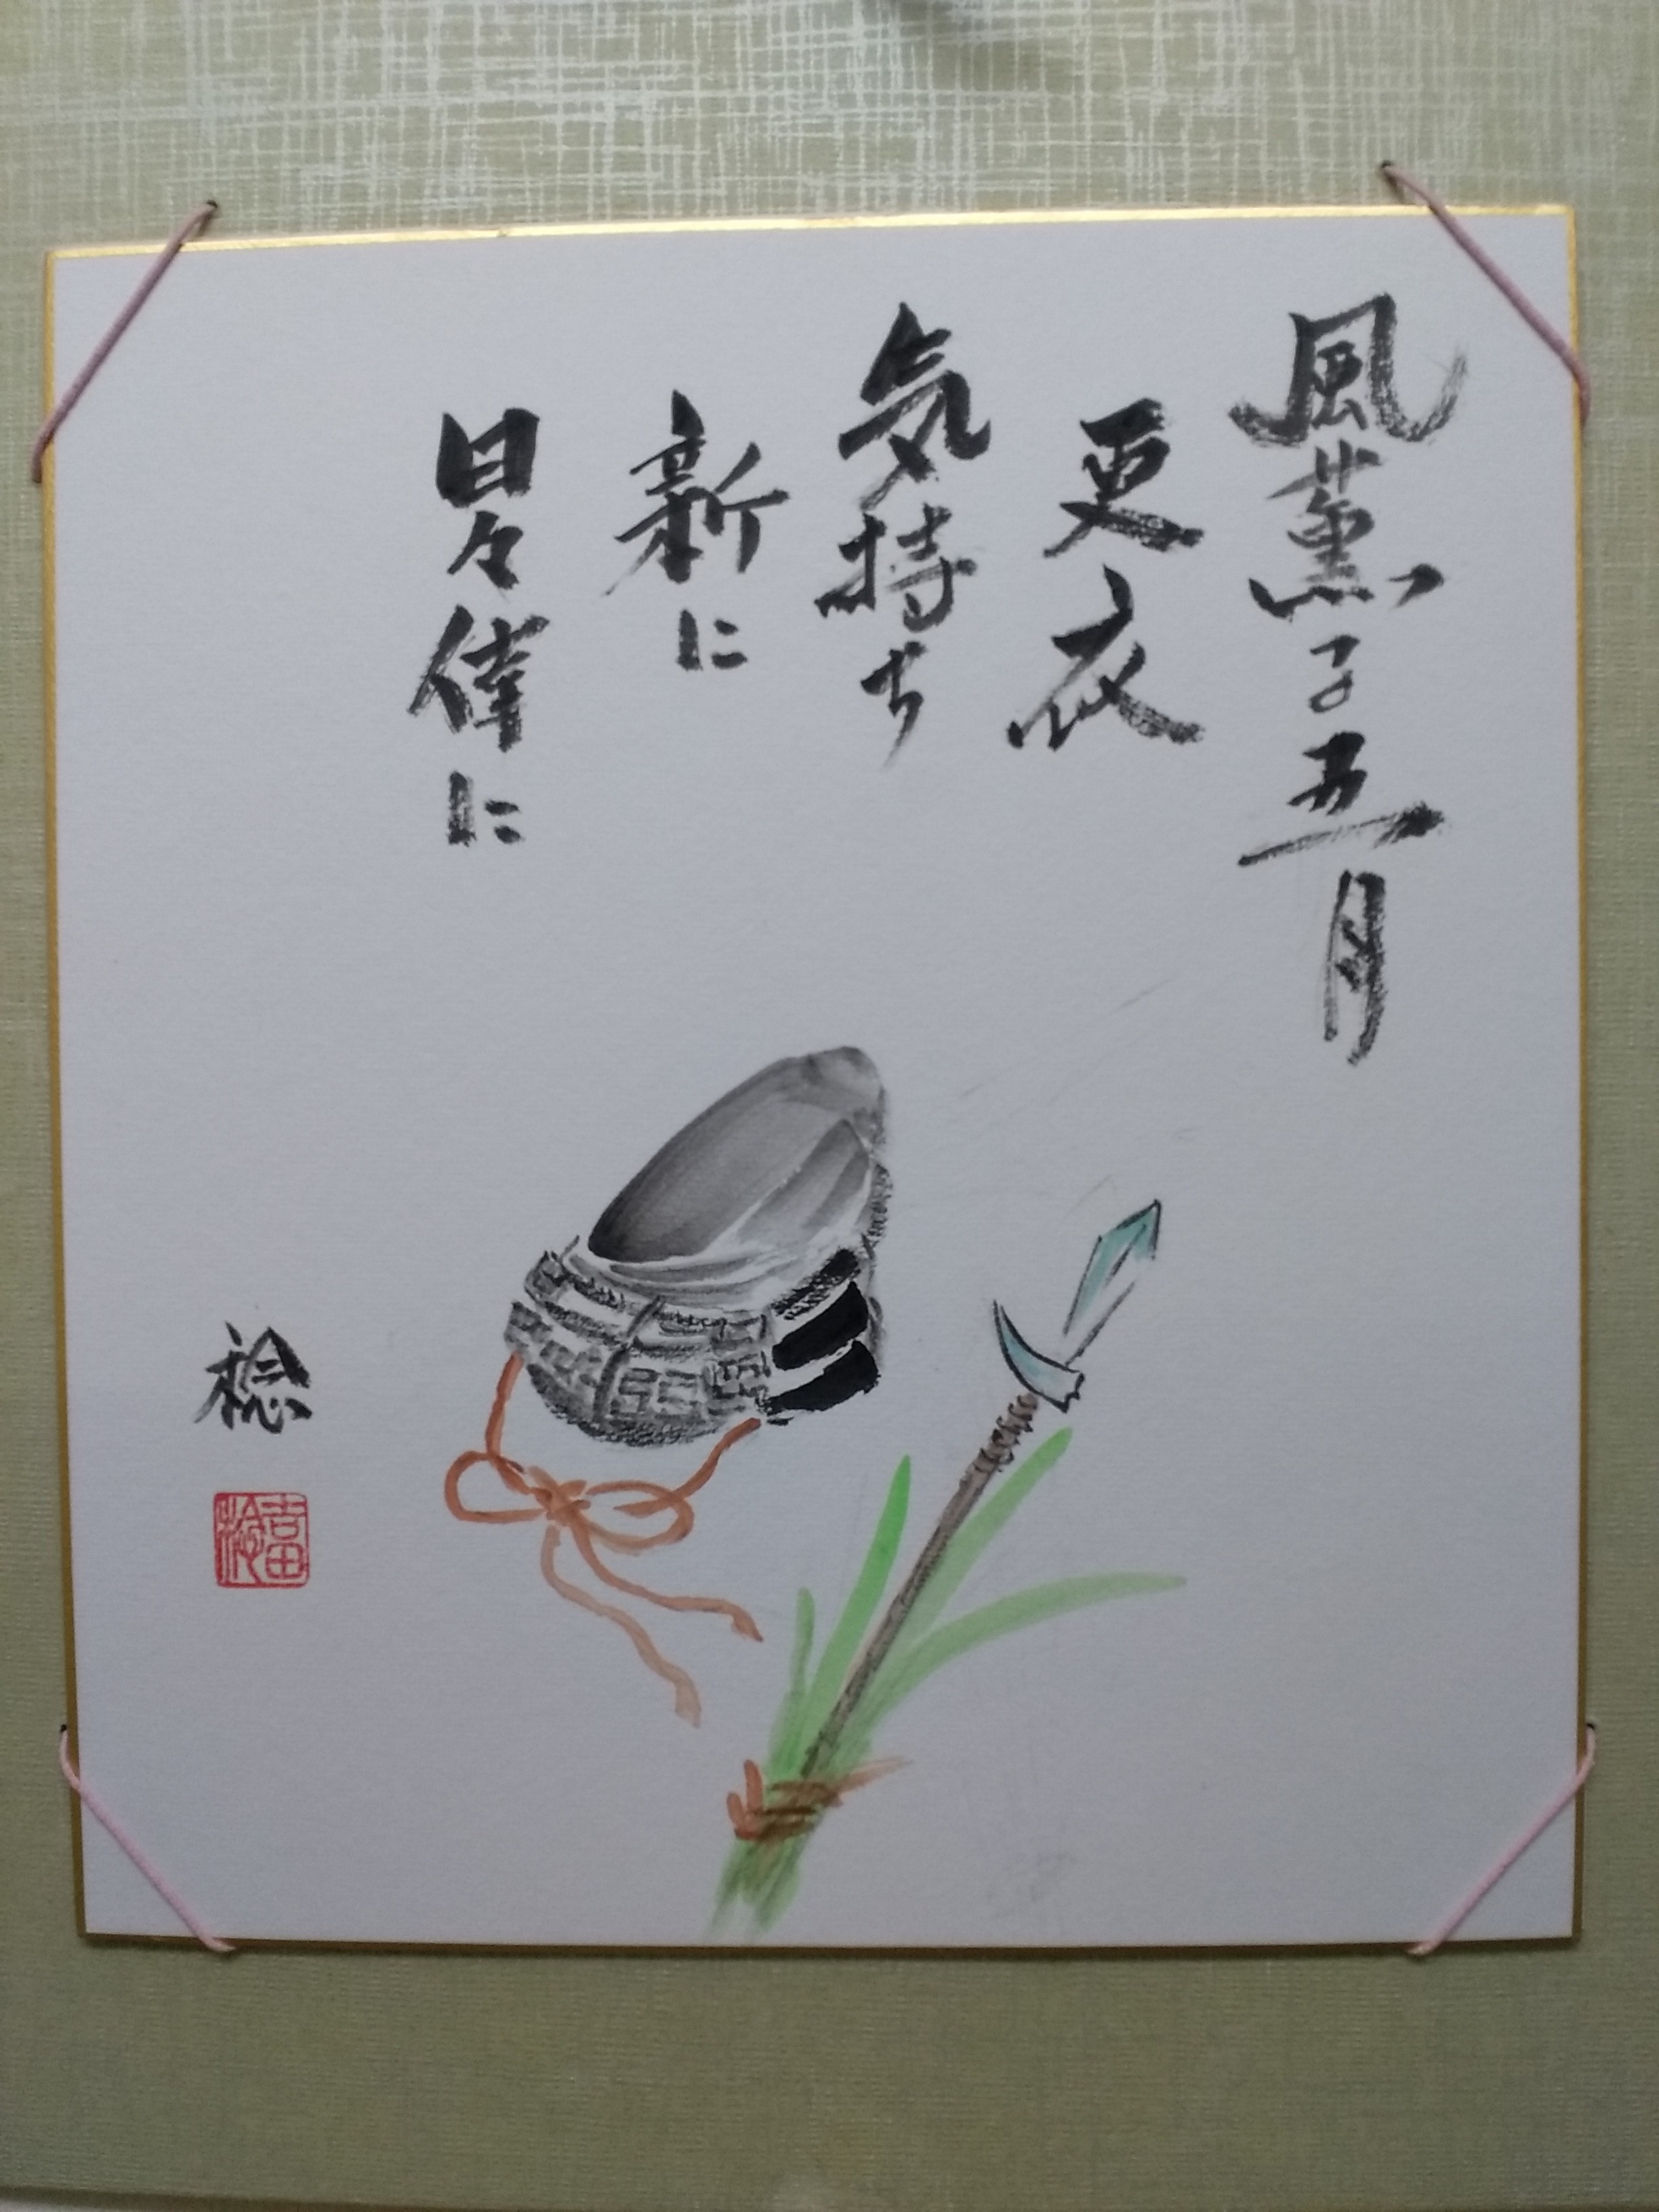 風薫る五月
更衣
気持ち
新に
日々偉に
稔
吉田稔